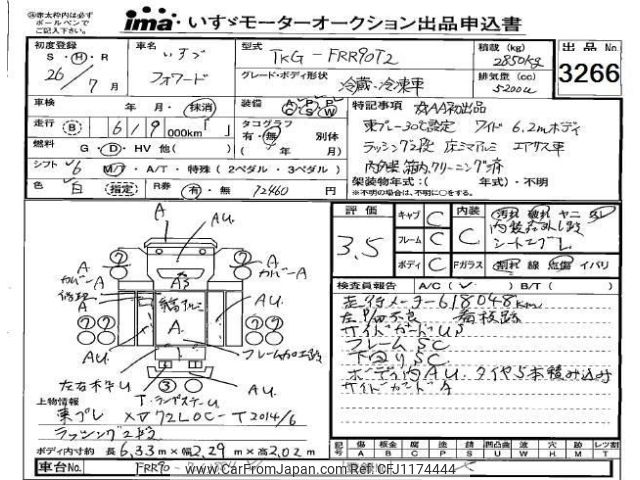 ㊟赤太枠内は必ず
ボールペンで
ご記入下さい。
ima いすゞモーターオークション出品申込書
初度登録 S・H・R 26/7月
車名 いすゞ フォワード
型式 TKG-FRR90T2
グレード・ボディ形状 冷蔵・冷凍車
積載(kg) 2850kg
排気量(cc) 5200cc
出品No. 3266
車検 年・月・抹消
走行 B 619 000km
燃料 G・D・HV 他( )
シフト 6 M/T・A/T・特殊(2ペダル・3ペダル)
色 白 指定 R券 有・無 12460円
装備 A P P A S W
タコグラフ 有・無 別体
( 年 月)
特記事項 AA初出品
東プレ-30℃設定 ワイド 6.2mボディ
ラッシング2段 床ミマアルミ エアサス車
内外装 箱内クリーニング済
架装物年式:( 年式)・不明
※不明の場合は、不明に○をする。
評価 3.5
キャブ C
フレーム C
ボディ C
内装 C
Fガラス
汚れ 破れ ヤニ
割れ 線 点傷 イバリ
検査員報告 A/C( ✓ ) B/T( )
走行メーター618048km
サイドガードU
フレームSC
下回りSC
ボディ内AU タイヤ5本積み込み
サイドガードA
A
AU.
A
カバーA
A
カバーA
A
A3
A.
AU.
AU.
フレーム
AU.
③
上物情報
東プレ XV72LOC-T 2014/6
ラッシング2段
ボディ内寸約 長6.33m×幅2.29m×高2.02m
記号 傷 板金 腐 塗 錆 凹凸曲 波 穴 跡 レッツ割
A B C P S U W H M T
車台No. FRR90-
www.CarFromJapan.com Ref:CFJ1174444